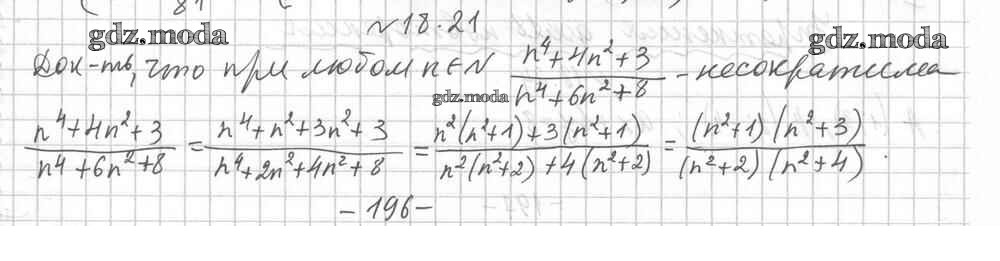 №18.21
gdz.moda
gdz.moda
Док-ть, что при любом n∈N (n⁴+4n²+3)/(n⁴+6n²+8) - несократима
gdz.moda
(n⁴+4n²+3)/(n⁴+6n²+8) = (n⁴+n²+3n²+3)/(n⁴+2n²+4n²+8) = (n²(n²+1)+3(n²+1))/(n²(n²+2)+4(n²+2)) = ((n²+1)(n²+3))/((n²+2)(n²+4)).
-196-